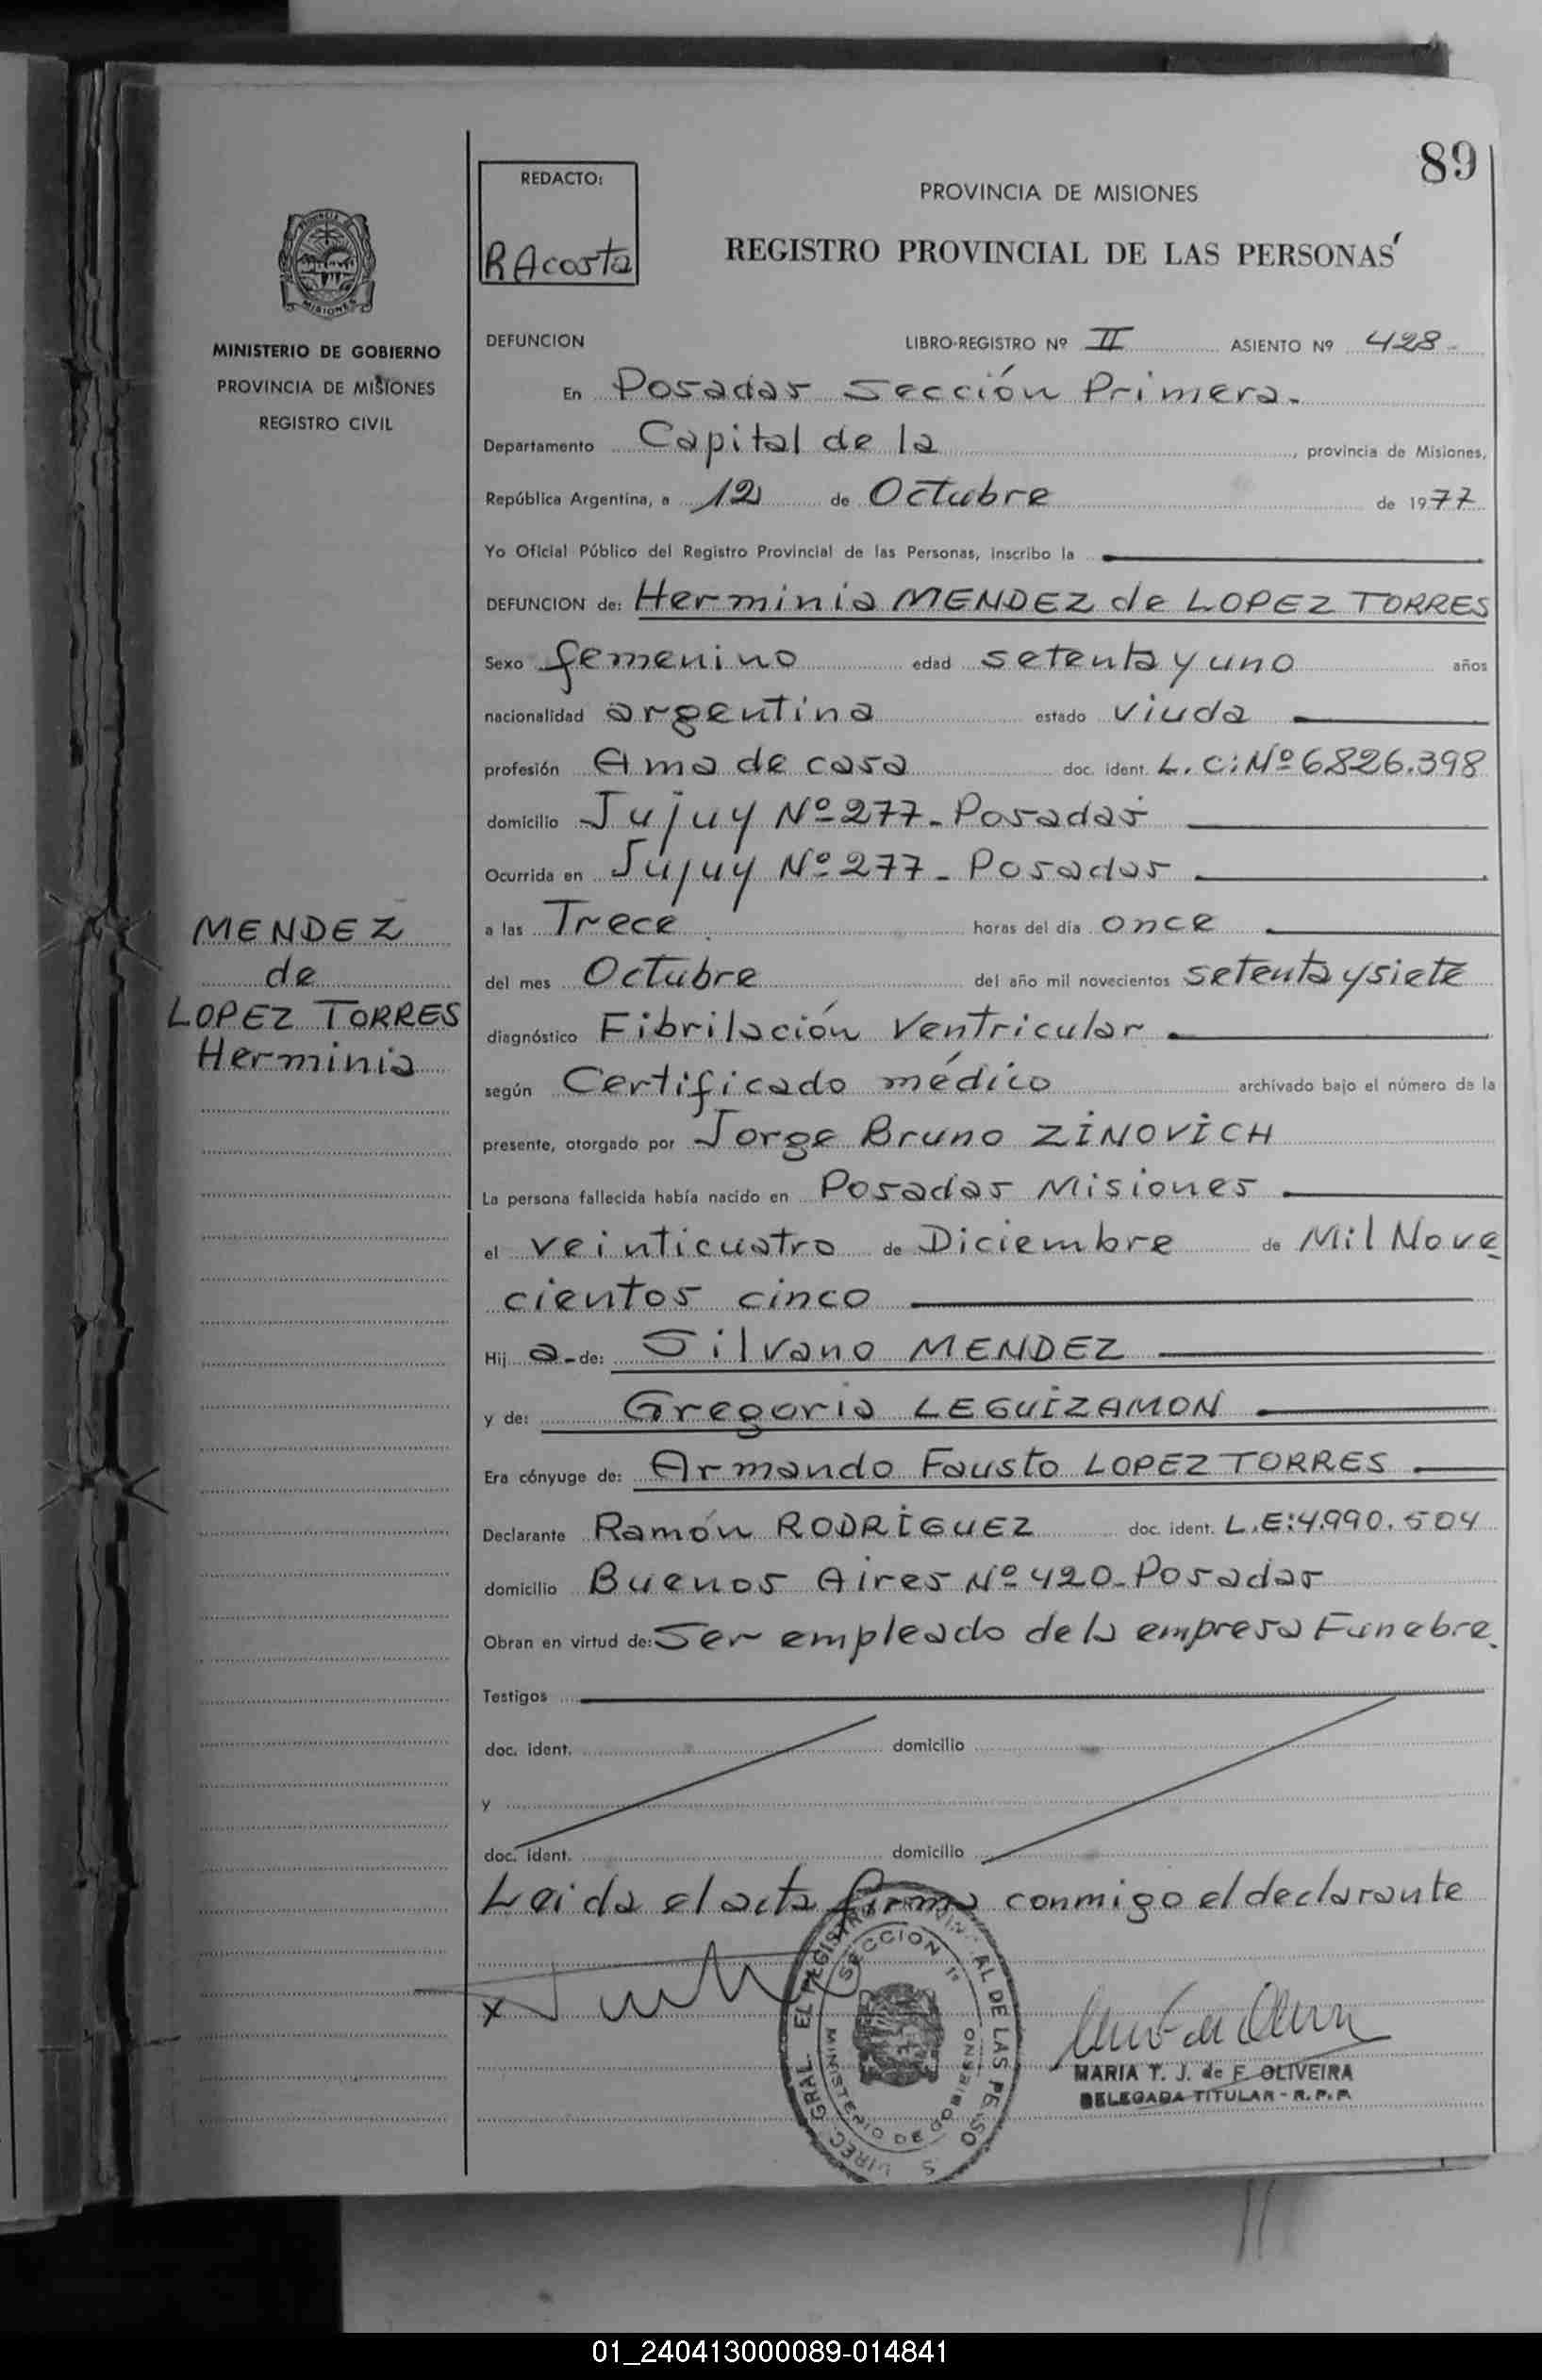 89
REDACTO:
R Acosta
PROVINCIA DE MISIONES
REGISTRO PROVINCIAL DE LAS PERSONAS
MISIONES
MINISTERIO DE GOBIERNO
PROVINCIA DE MISIONES
REGISTRO CIVIL
DEFUNCION LIBRO-REGISTRO Nº II ASIENTO Nº 428
En Posadas Sección Primera.
Departamento Capital de la , provincia de Misiones,
República Argentina, a 12 de Octubre de 1977
Yo Oficial Público del Registro Provincial de las Personas, inscribo la
DEFUNCION de: Herminia MENDEZ de LOPEZ TORRES
Sexo femenino edad setenta y uno años
nacionalidad argentina estado viuda
profesión Ama de casa doc. ident. L.C: Nº 6826.398
domicilio Jujuy Nº 277 - Posadas
Ocurrida en Jujuy Nº 277 - Posadas
a las Trece horas del día once
del mes Octubre del año mil novecientos setenta y siete
diagnóstico Fibrilación Ventricular
según Certificado médico archivado bajo el número de la
presente, otorgado por Jorge Bruno ZINOVICH
La persona fallecida había nacido en Posadas Misiones
el veinticuatro de Diciembre de Mil Nove
cientos cinco
Hij a - de: Silvano MENDEZ
y de: Gregoria LEGUIZAMON
Era cónyuge de: Armando Fausto LOPEZ TORRES
Declarante Ramón RODRIGUEZ doc. ident. L.E: 4.990.504
domicilio Buenos Aires Nº 420 - Posadas
Obran en virtud de: Ser empleado de la empresa Funebre.
Testigos
doc. ident. domicilio
y
doc. ident. domicilio
Leida el acta firma conmigo el declarante
MENDEZ
de
LOPEZ TORRES
Herminia
SECCION 1ª
MINISTERIO DE GOBIERNO
MARIA T. J. de F. OLIVEIRA
DELEGADA TITULAR - R. P. P.
01_240413000089-014841